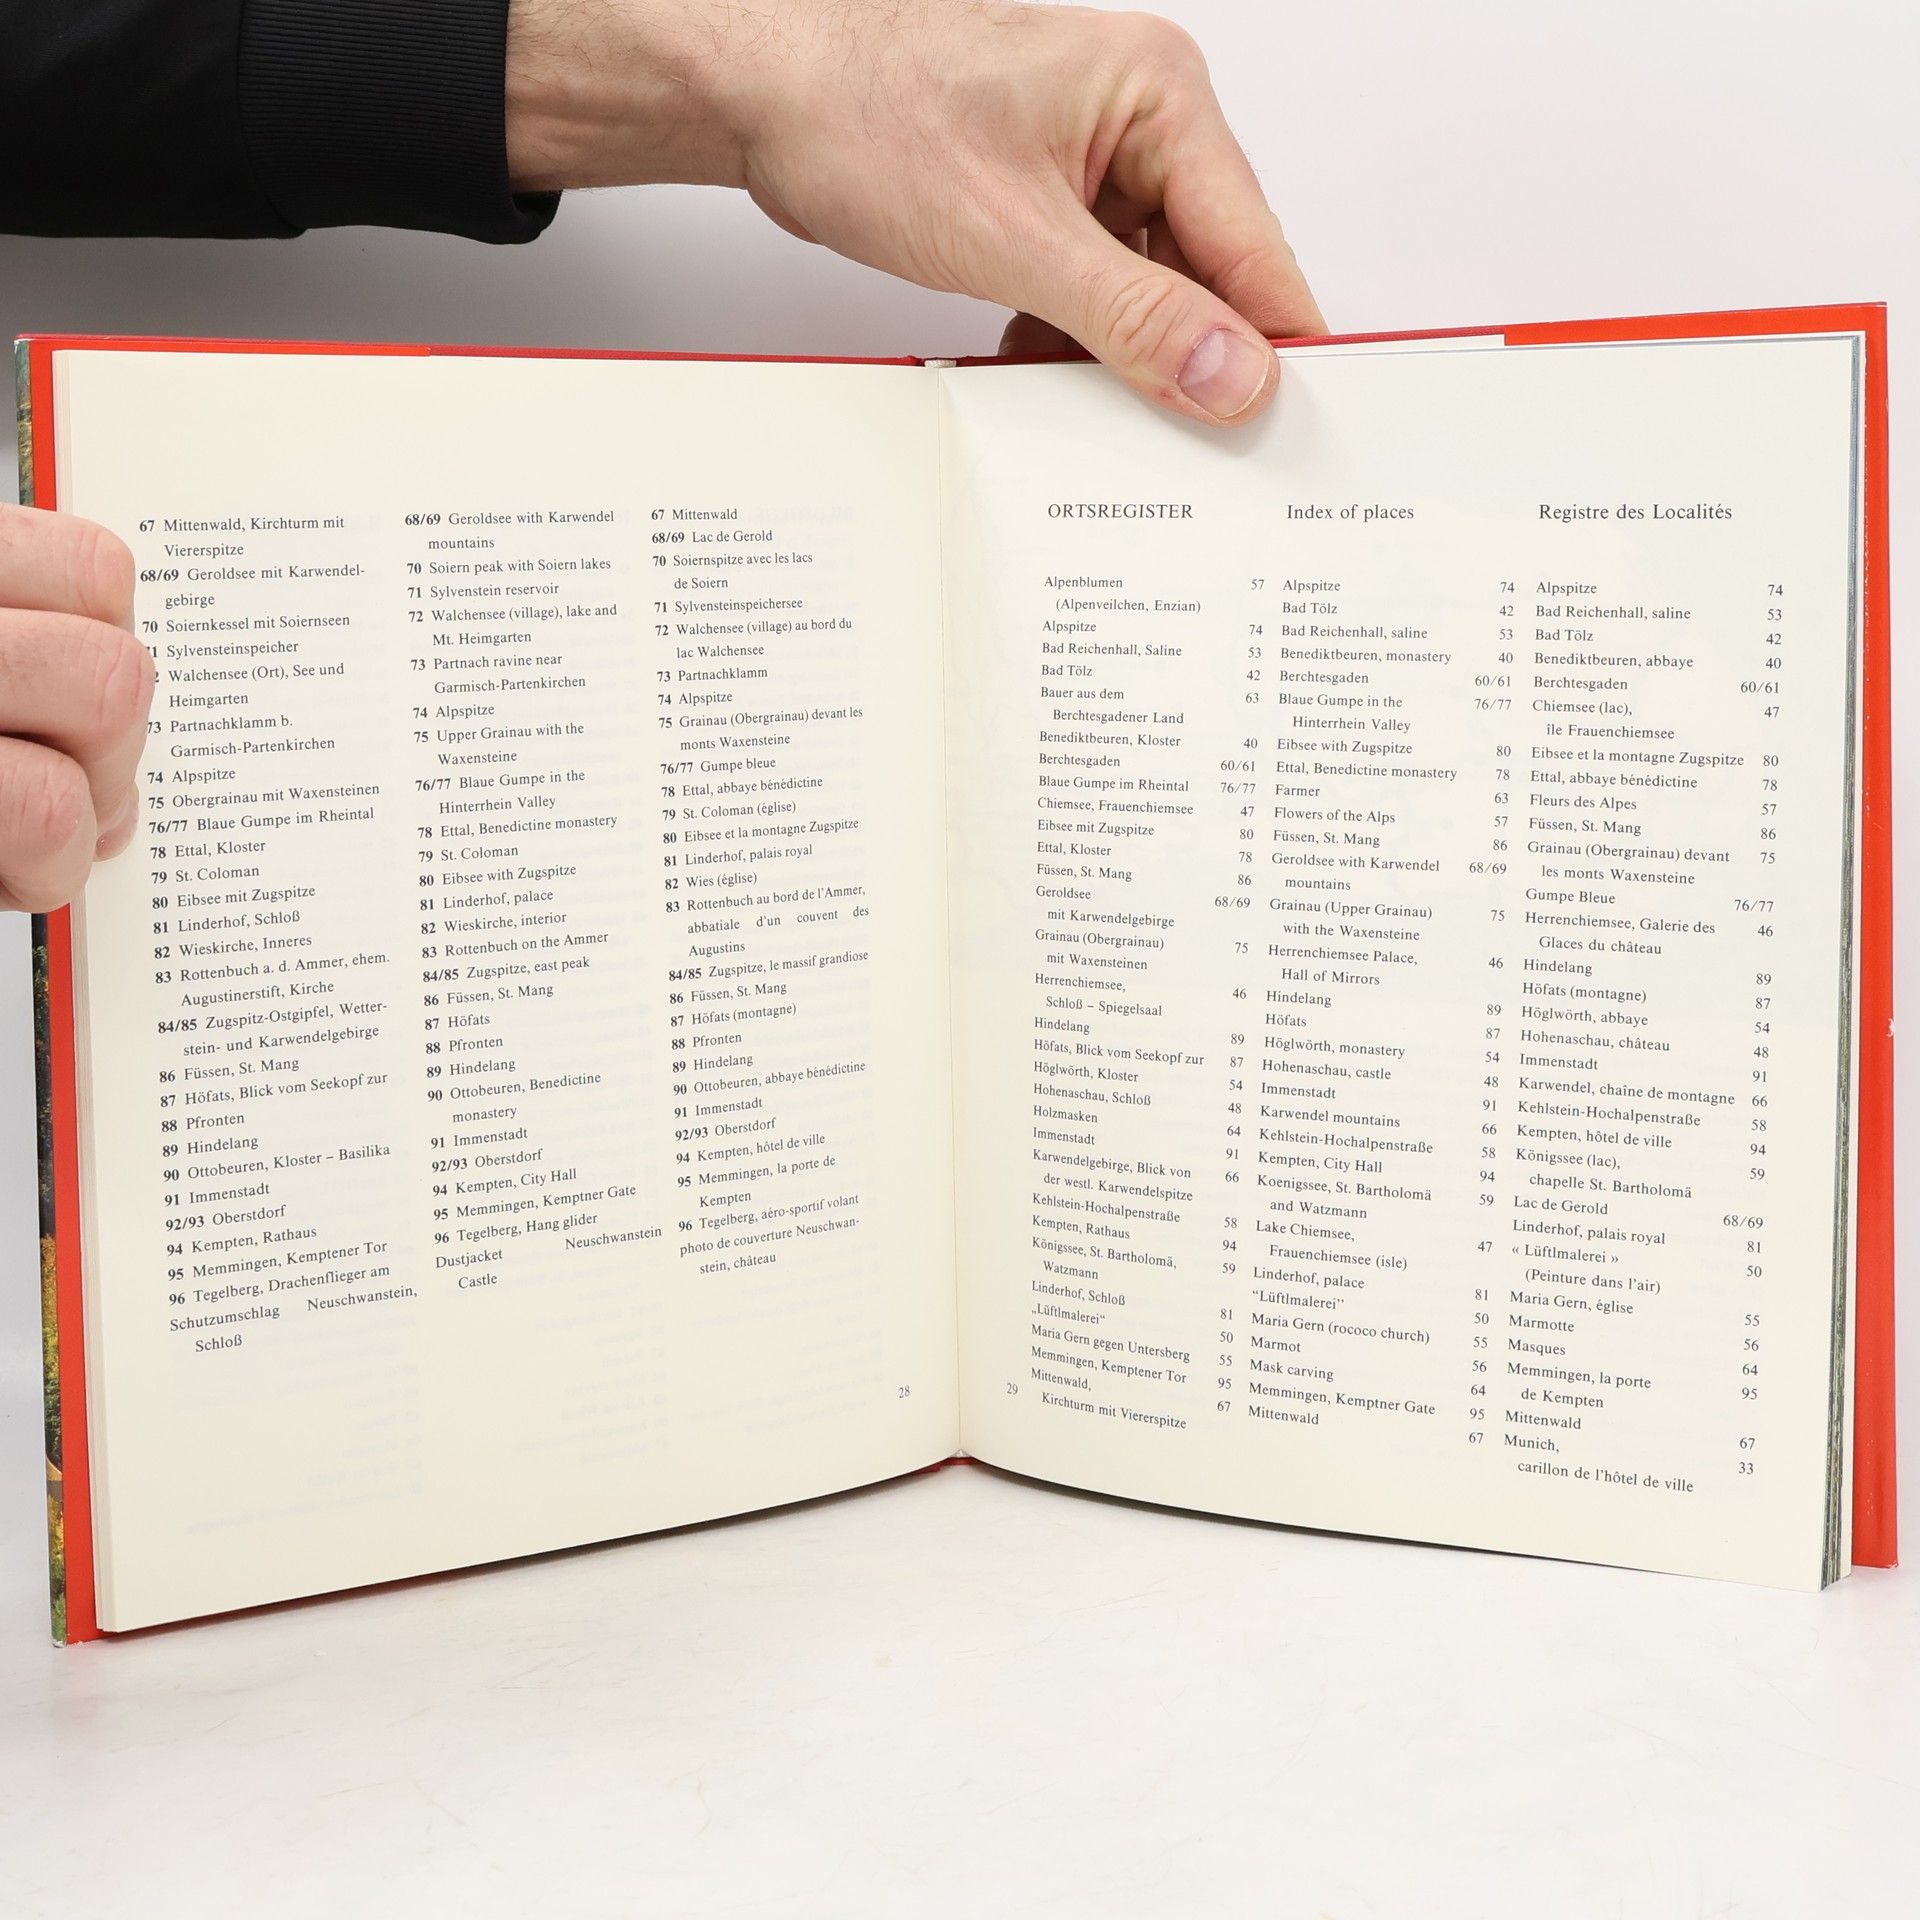 67 Mittenwald, Kirchturm mit
Viererspitze
68/69 Geroldsee mit Karwendel-
gebirge
70 Soiernkessel mit Soiernseen
Sylvensteinspeicher
Walchensee (Ort), See und
Heimgarten
73 Partnachklamm b.
Garmisch-Partenkirchen
74 Alpspitze
75 Obergrainau mit Waxensteinen
76/77 Blaue Gumpe im Rheintal
78 Ettal, Kloster
79 St. Coloman
80 Eibsee mit Zugspitze
81 Linderhof, Schloß
82 Wieskirche, Inneres
83 Rottenbuch a. d. Ammer, ehem.
Augustinerstift, Kirche
84/85 Zugspitz-Ostgipfel, Wetter-
stein- und Karwendelgebirge
86 Füssen, St. Mang
87 Höfats, Blick vom Seekopf zur
88 Pfronten
89 Hindelang
90 Ottobeuren, Kloster – Basilika
91 Immenstadt
92/93 Oberstdorf
94 Kempten, Rathaus
95 Memmingen, Kemptener Tor
96 Tegelberg, Drachenflieger am
Schutzumschlag Neuschwanstein,
Schloß
68/69 Geroldsee with Karwendel
mountains
70 Soiern peak with Soiern lakes
71 Sylvenstein reservoir
72 Walchensee (village), lake and
Mt. Heimgarten
73 Partnach ravine near
Garmisch-Partenkirchen
74 Alpspitze
75 Upper Grainau with the
Waxensteine
76/77 Blaue Gumpe in the
Hinterrhein Valley
78 Ettal, Benedictine monastery
79 St. Coloman
80 Eibsee with Zugspitze
81 Linderhof, palace
82 Wieskirche, interior
83 Rottenbuch on the Ammer
84/85 Zugspitze, east peak
86 Füssen, St. Mang
87 Höfats
88 Pfronten
89 Hindelang
90 Ottobeuren, Benedictine
monastery
91 Immenstadt
92/93 Oberstdorf
94 Kempten, City Hall
95 Memmingen, Kemptner Gate
96 Tegelberg, Hang glider
Dustjacket Neuschwanstein
Castle
67 Mittenwald
68/69 Lac de Gerold
70 Soiernspitze avec les lacs
de Soiern
71 Sylvensteinspeichersee
72 Walchensee (village) au bord du
lac Walchensee
73 Partnachklamm
74 Alpspitze
75 Grainau (Obergrainau) devant les
monts Waxensteine
76/77 Gumpe bleue
78 Ettal, abbaye bénédictine
79 St. Coloman (église)
80 Eibsee et la montagne Zugspitze
81 Linderhof, palais royal
82 Wies (église)
83 Rottenbuch au bord de l'Ammer,
abbatiale d'un couvent des
Augustins
84/85 Zugspitze, le massif grandiose
86 Füssen, St. Mang
87 Höfats (montagne)
88 Pfronten
89 Hindelang
90 Ottobeuren, abbaye bénédictine
91 Immenstadt
92/93 Oberstdorf
94 Kempten, hôtel de ville
95 Memmingen, la porte de
Kempten
96 Tegelberg, aéro-sportif volant
photo de couverture Neuschwan-
stein, château
28
ORTSREGISTER
Alpenblumen 57
(Alpenveilchen, Enzian)
Alpspitze 74
Bad Reichenhall, Saline 53
Bad Tölz 42
Bauer aus dem 63
Berchtesgadener Land
Benediktbeuren, Kloster 40
Berchtesgaden 60/61
Blaue Gumpe im Rheintal 76/77
Chiemsee, Frauenchiemsee 47
Eibsee mit Zugspitze 80
Ettal, Kloster 78
Füssen, St. Mang 86
Geroldsee 68/69
mit Karwendelgebirge
Grainau (Obergrainau) 75
mit Waxensteinen
Herrenchiemsee, 46
Schloß – Spiegelsaal
Hindelang 89
Höfats, Blick vom Seekopf zur 87
Höglwörth, Kloster 54
Hohenaschau, Schloß 48
Holzmasken 64
Immenstadt 91
Karwendelgebirge, Blick von 66
der westl. Karwendelspitze
Kehlstein-Hochalpenstraße 58
Kempten, Rathaus 94
Königssee, St. Bartholomä, 59
Watzmann
Linderhof, Schloß 81
„Lüftlmalerei“ 50
Maria Gern gegen Untersberg 55
Memmingen, Kemptener Tor 95
Mittenwald, 67
Kirchturm mit Viererspitze
Index of places
Alpspitze 74
Bad Tölz 42
Bad Reichenhall, saline 53
Benediktbeuren, monastery 40
Berchtesgaden 60/61
Blaue Gumpe in the 76/77
Hinterrhein Valley
Eibsee with Zugspitze 80
Ettal, Benedictine monastery 78
Farmer 63
Flowers of the Alps 57
Füssen, St. Mang 86
Geroldsee with Karwendel 68/69
mountains
Grainau (Upper Grainau) 75
with the Waxensteine
Herrenchiemsee Palace, 46
Hall of Mirrors
Hindelang 89
Höfats 87
Höglwörth, monastery 54
Hohenaschau, castle 48
Immenstadt 91
Karwendel mountains 66
Kehlstein-Hochalpenstraße 58
Kempten, City Hall 94
Koenigssee, St. Bartholomä 59
and Watzmann
Lake Chiemsee, 47
Frauenchiemsee (isle)
Linderhof, palace 81
“Lüftlmalerei” 50
Maria Gern (rococo church) 55
Marmot 56
Mask carving 64
Memmingen, Kemptner Gate 95
Mittenwald 67
Registre des Localités
Alpspitze 74
Bad Reichenhall, saline 53
Bad Tölz 42
Benediktbeuren, abbaye 40
Berchtesgaden 60/61
Chiemsee (lac), 47
île Frauenchiemsee
Eibsee et la montagne Zugspitze 80
Ettal, abbaye bénédictine 78
Fleurs des Alpes 57
Füssen, St. Mang 86
Grainau (Obergrainau) devant 75
les monts Waxensteine
Gumpe Bleue 76/77
Herrenchiemsee, Galerie des 46
Glaces du château
Hindelang 89
Höfats (montagne) 87
Höglwörth, abbaye 54
Hohenaschau, château 48
Immenstadt 91
Karwendel, chaîne de montagne 66
Kehlstein-Hochalpenstraße 58
Kempten, hôtel de ville 94
Königssee (lac), 59
chapelle St. Bartholomä
Lac de Gerold 68/69
Linderhof, palais royal 81
« Lüftlmalerei » 50
(Peinture dans l'air)
Maria Gern, église 55
Marmotte 56
Masques 64
Memmingen, la porte 95
de Kempten
Mittenwald 67
Munich, 33
carillon de l'hôtel de ville
29